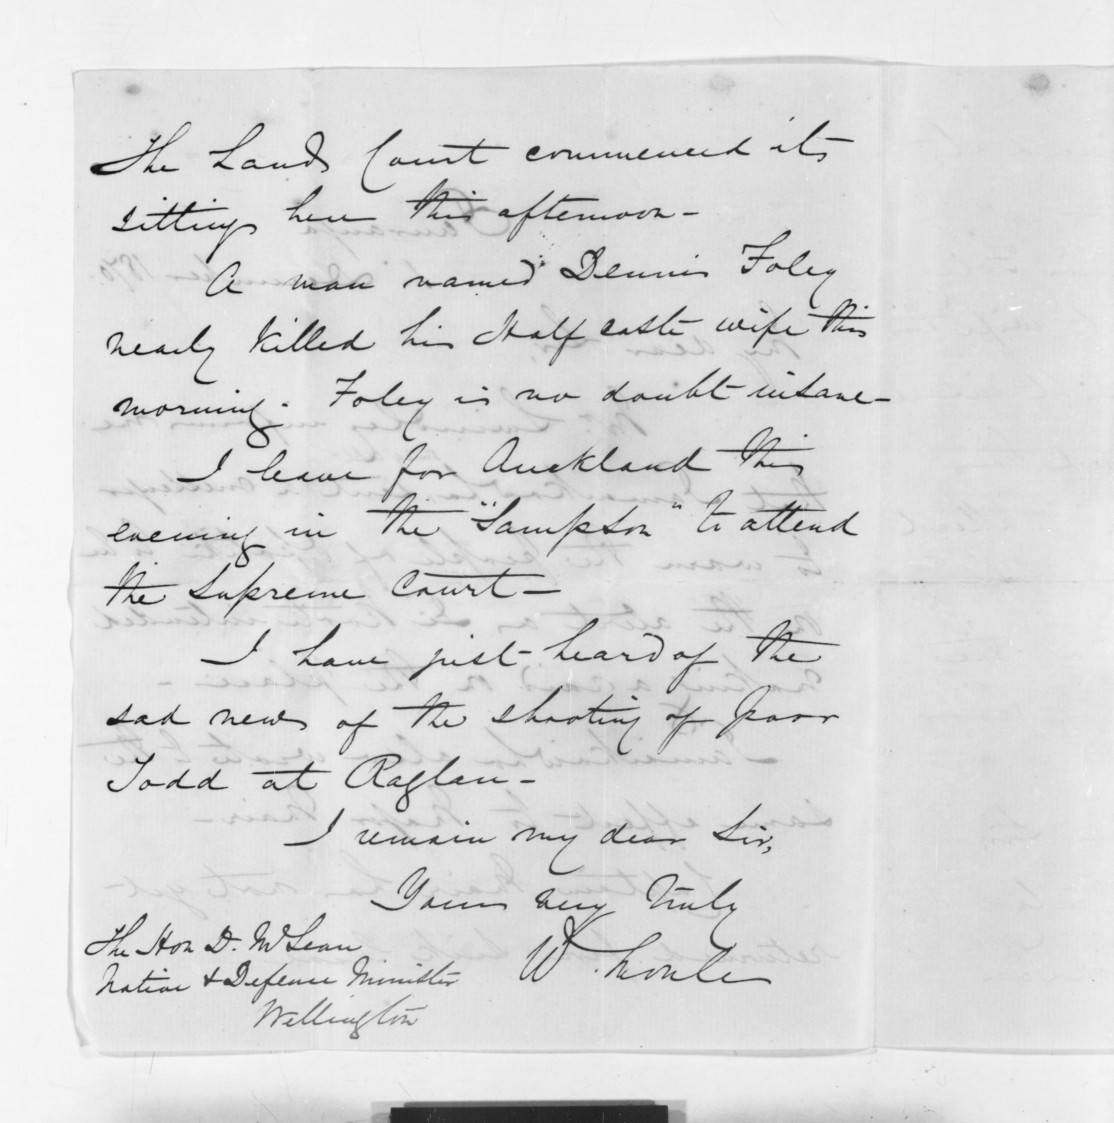 The Lands Court commenced its
sittings here this afternoon -
A man named Dennis Foley
nearly killed his Half caste wife this
morning. Foley is no doubt insane -
I leave for Auckland this
evening in the "Sampson" to attend
the Supreme Court -
I have just heard of the
sad news of the shooting of poor
Todd at Raglan -
I remain my dear Sir,
Yours very truly
W. Moule
The Hon D. McLean
Native & Defence Minister
Wellington